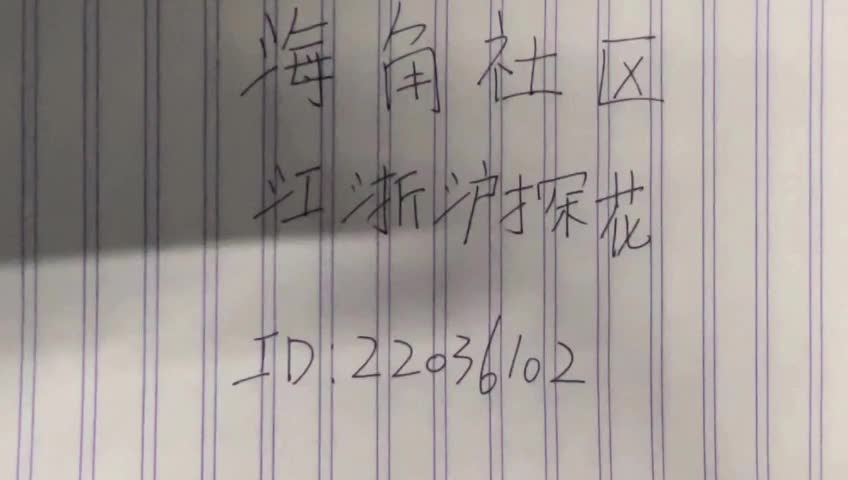 海角社区
江浙沪探花
ID:22036102